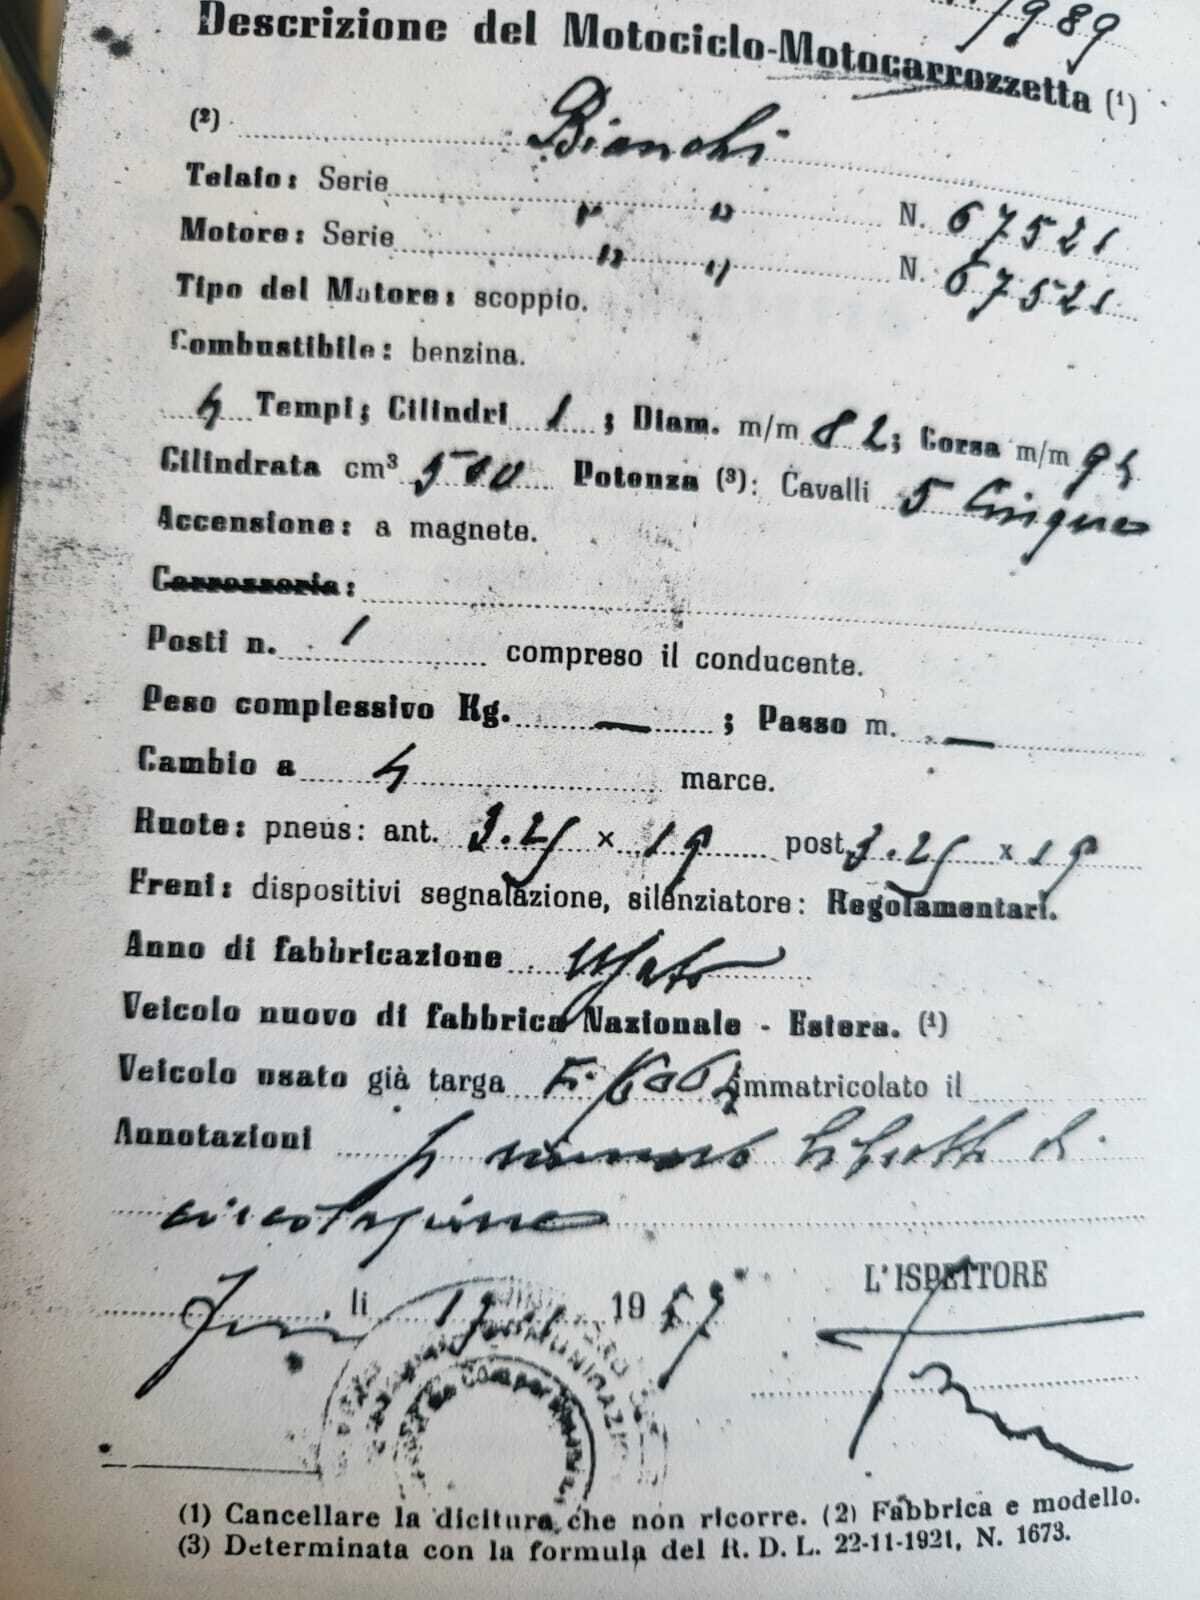 1989
Descrizione del Motociclo-Motocarrozzetta (1)
(2) Bianchi
Telaio: Serie " " N. 67521
Motore: Serie " " N. 67521
Tipo del Motore: scoppio.
Combustibile: benzina.
4 Tempi; Cilindri 1; Diam. m/m 82; Corsa m/m 94
Cilindrata cm³ 500 Potenza (3): Cavalli 5 Cinque
Accensione: a magnete.
Carrozzeria:
Posti n. 1 compreso il conducente.
Peso complessivo Kg. —; Passo m. —
Cambio a 4 marce.
Ruote: pneus: ant. 3.25 x 19 post. 3.25 x 19
Freni: dispositivi segnalazione, silenziatore: Regolamentari.
Anno di fabbricazione Usato
Veicolo nuovo di fabbrica Nazionale - Estera. (1)
Veicolo usato già targa immatricolato il
Annotazioni libretto di
circolazione
, li 1957
L'ISPETTORE
(1) Cancellare la dicitura che non ricorre. (2) Fabbrica e modello.
(3) Determinata con la formula del R. D. L. 22-11-1921, N. 1673.